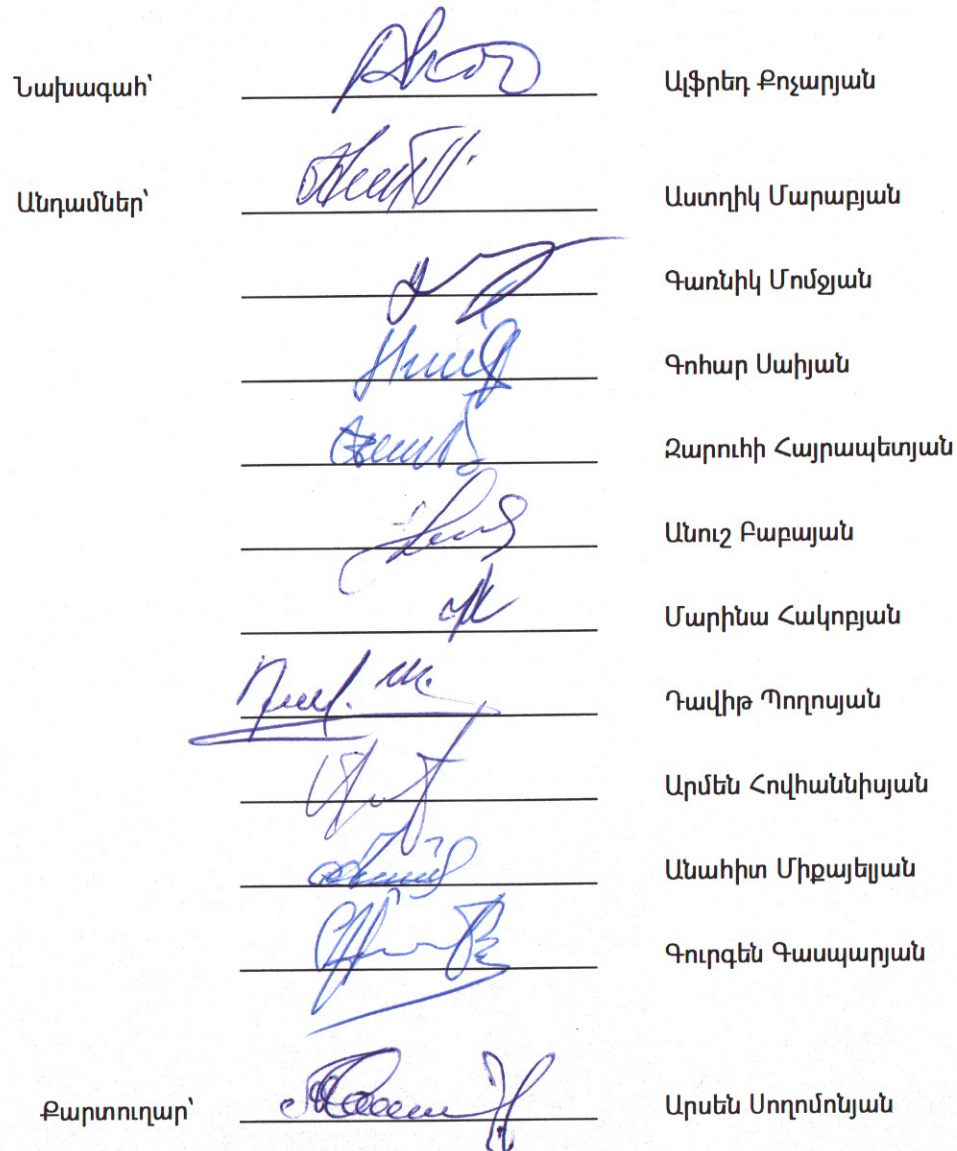 Նախագահ՝ Ալֆրեդ Քոչարյան
Անդամներ՝ Աստղիկ Մարաբյան
Գառնիկ Մոմջյան
Գոհար Սաիյան
Զարուհի Հայրապետյան
Անուշ Բաբայան
Մարինա Հակոբյան
Դավիթ Պողոսյան
Արմեն Հովհաննիսյան
Անահիտ Միքայելյան
Գուրգեն Գասպարյան
Քարտուղար՝ Արսեն Սողոմոնյան